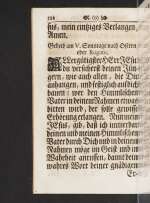 126 ❧ (o) ❧
sus, mein einziges Verlangen,
Amen.
Gebeth am V. Sonntage nach Ostern
oder Rogate.
ALlergütigster HErr JEsu
du versicherst deinen Jün-
gern, wie auch allen, die Dir
anhangen, und festiglich auf dich
bauen: wer den Himmlischen
Vater in deinem Nahmen etwas
bitten wird, der solle große
Erhöerung erlangen. Nun mein
JEsus, gib, daß ich
deinen und meinen Himmlischen
Vater durch Dich und in deinem
Nahmen möge im Geist und der
Wahrheit anrüffen, dann dein
wahres Wort deiner gnädigen
Er-